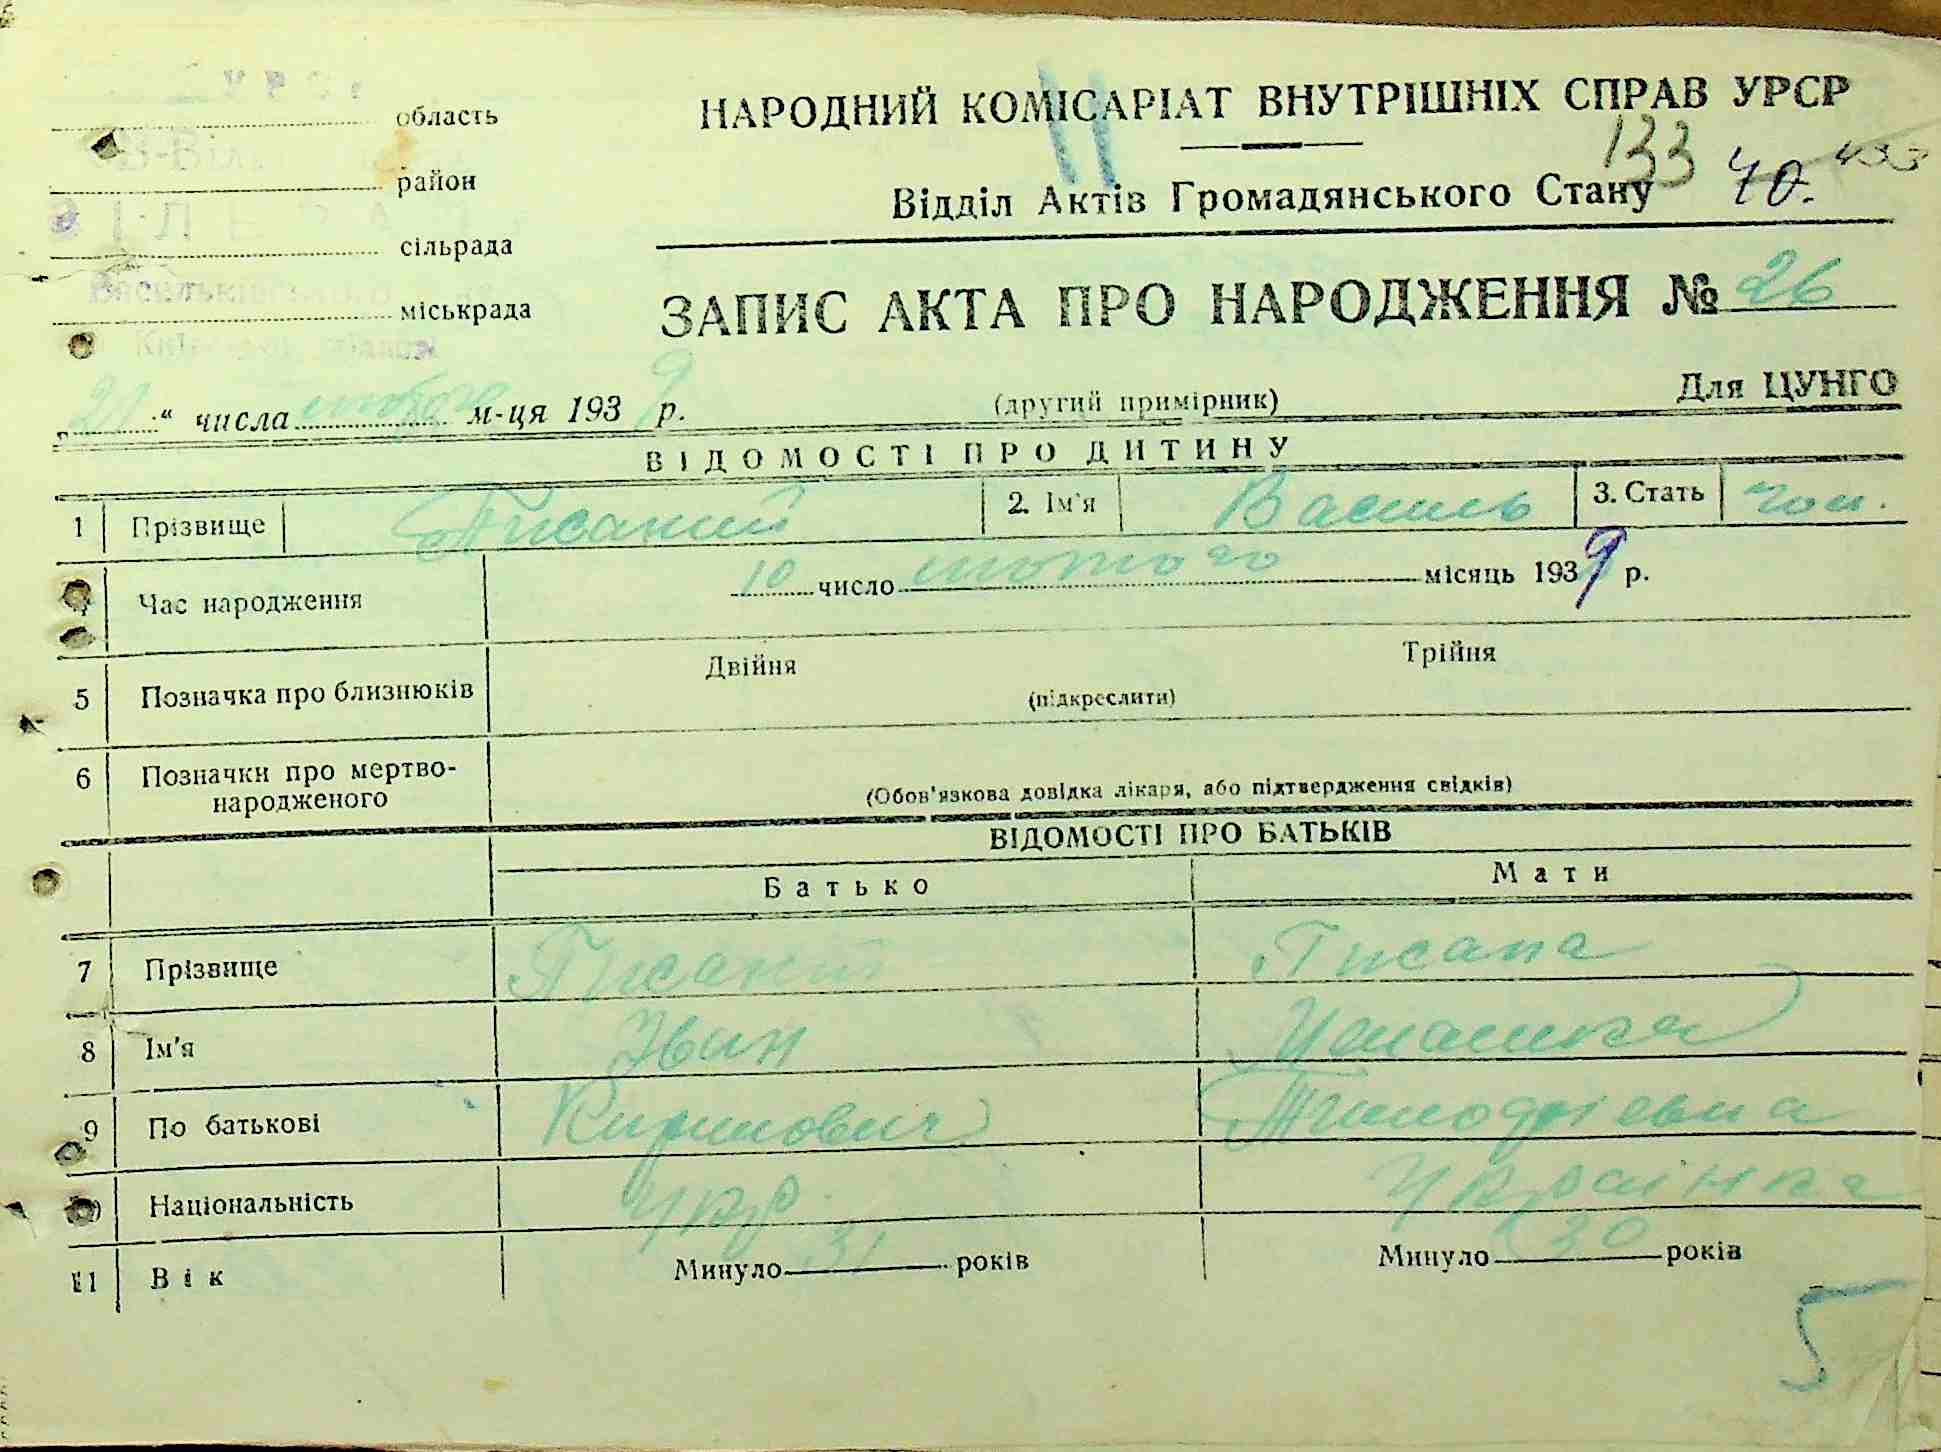 область
В-Віль
район
сільрада
Васильківського
міськрада
НАРОДНИЙ КОМІСАРІАТ ВНУТРІШНІХ СПРАВ УРСР
11
133 40. 133
Відділ Актів Громадянського Стану
ЗАПИС АКТА ПРО НАРОДЖЕННЯ № 26
„21“ числа лютого м-ця 1939 р.
(другий примірник)
Для ЦУНГО
ВІДОМОСТІ ПРО ДИТИНУ
1 Прізвище Писаний 2. Ім'я Василь 3. Стать чол.
4 Час народження 10 число лютого місяць 1939 р.
5 Позначка про близнюків Двійня Трійня
(підкреслити)
6 Позначки про мертво-
народженого
(Обов'язкова довідка лікаря, або підтвердження свідків)
ВІДОМОСТІ ПРО БАТЬКІВ
Батько Мати
7 Прізвище Писаний Писана
8 Ім'я Іван
9 По батькові Кирилович
10 Національність Укр. Українка
11 Вік Минуло 31 років Минуло 30 років
5